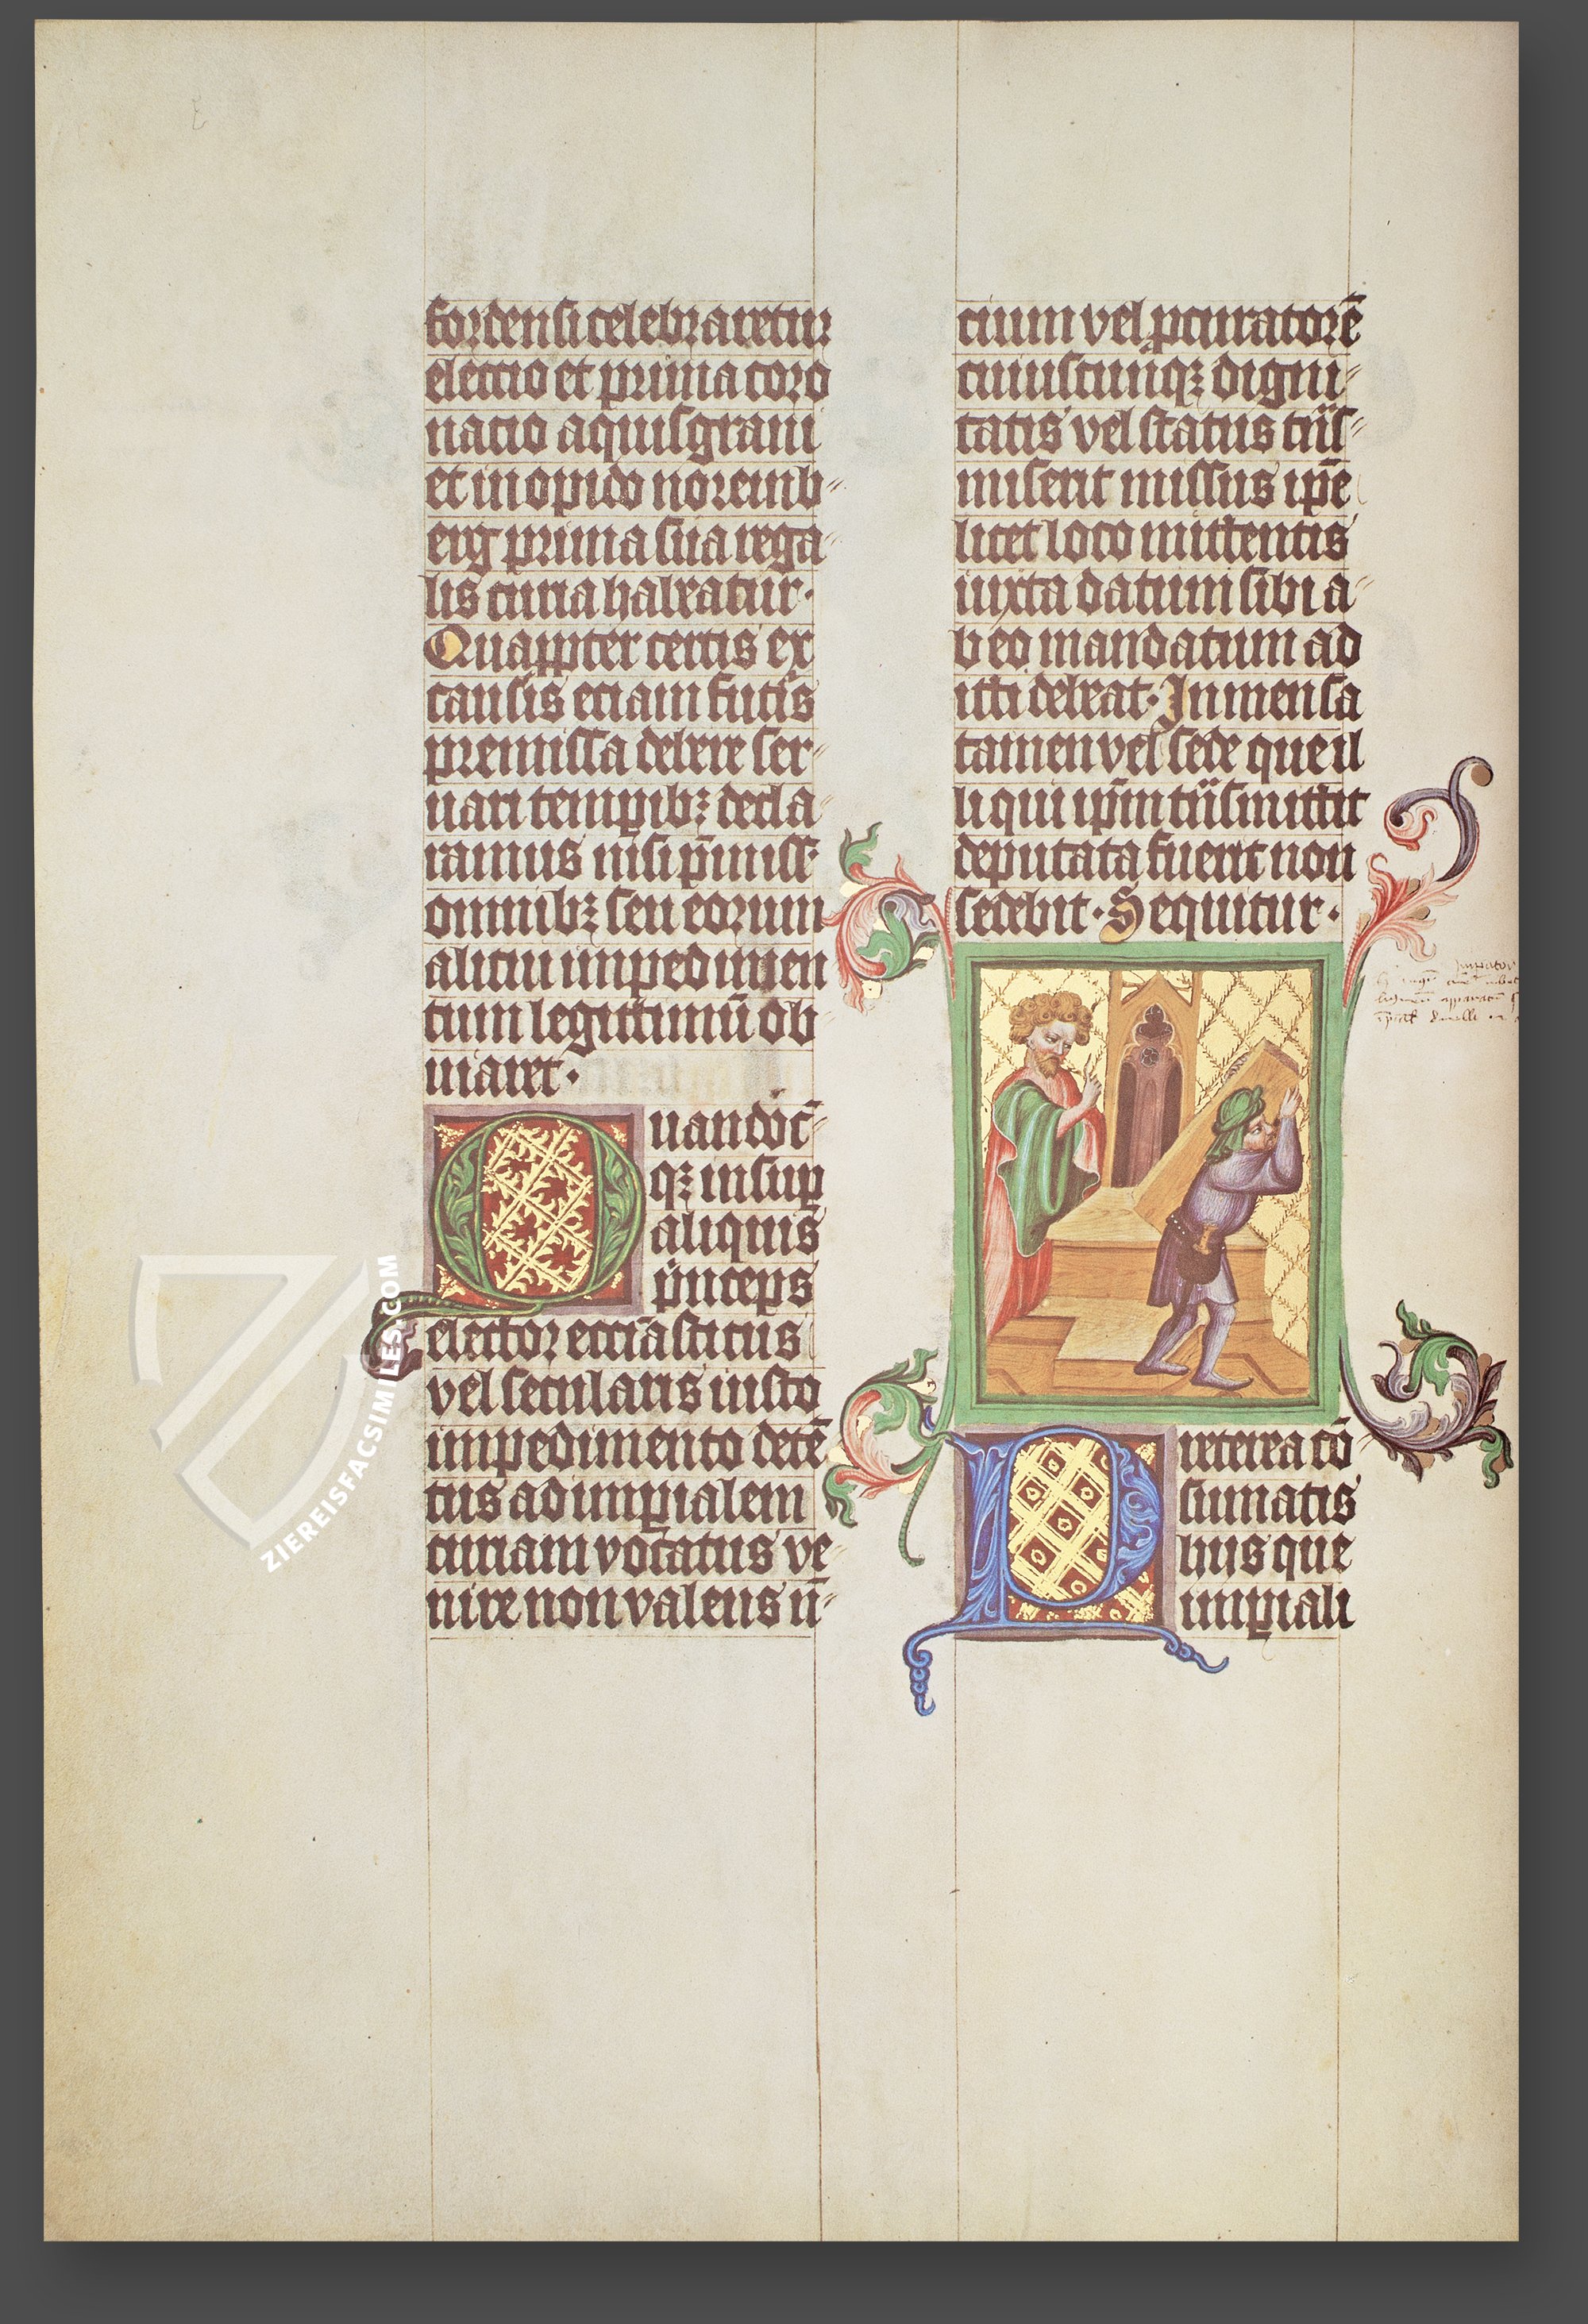 fordensi celebraretur
electio et prima coro
nacio aquisgrani
et in opido noremb
erg prima sua rega
lis curia habeatur.
Quapp̱ter certis ex
causis eciam futīs
premissa debere ser
uari temp̱ib⁊ decla
ramus nisi p̄miss̄
omnib⁊ seu eorum
alicui imp̱edimen
tum legittimū ob
uiaret.
Quandoc̄
q⁊ insup̱
aliquis
p̄nceps
elector ecc̄iasticus
vel secularis iusto
imp̱edimento detē
tus ad imp̱ialem
curiam vocatus ve
nire non valens n̄
cium vel p̱curatorē
cuiuscunq⁊ digni
tatis vel status tn̄s
miserit missus ip̄e
licet loco mittentis
iuxta datum sibi a
b eo mandatum ad
itti debeat. In mensa
tamen vel sede que il
li qui ip̄m tn̄smittit
deputata fuerit non
sedebit. Sequitur.
Preterea cō
sumatis
hiis que
imp̱iali
ZIEREISFACSIMILES.COM